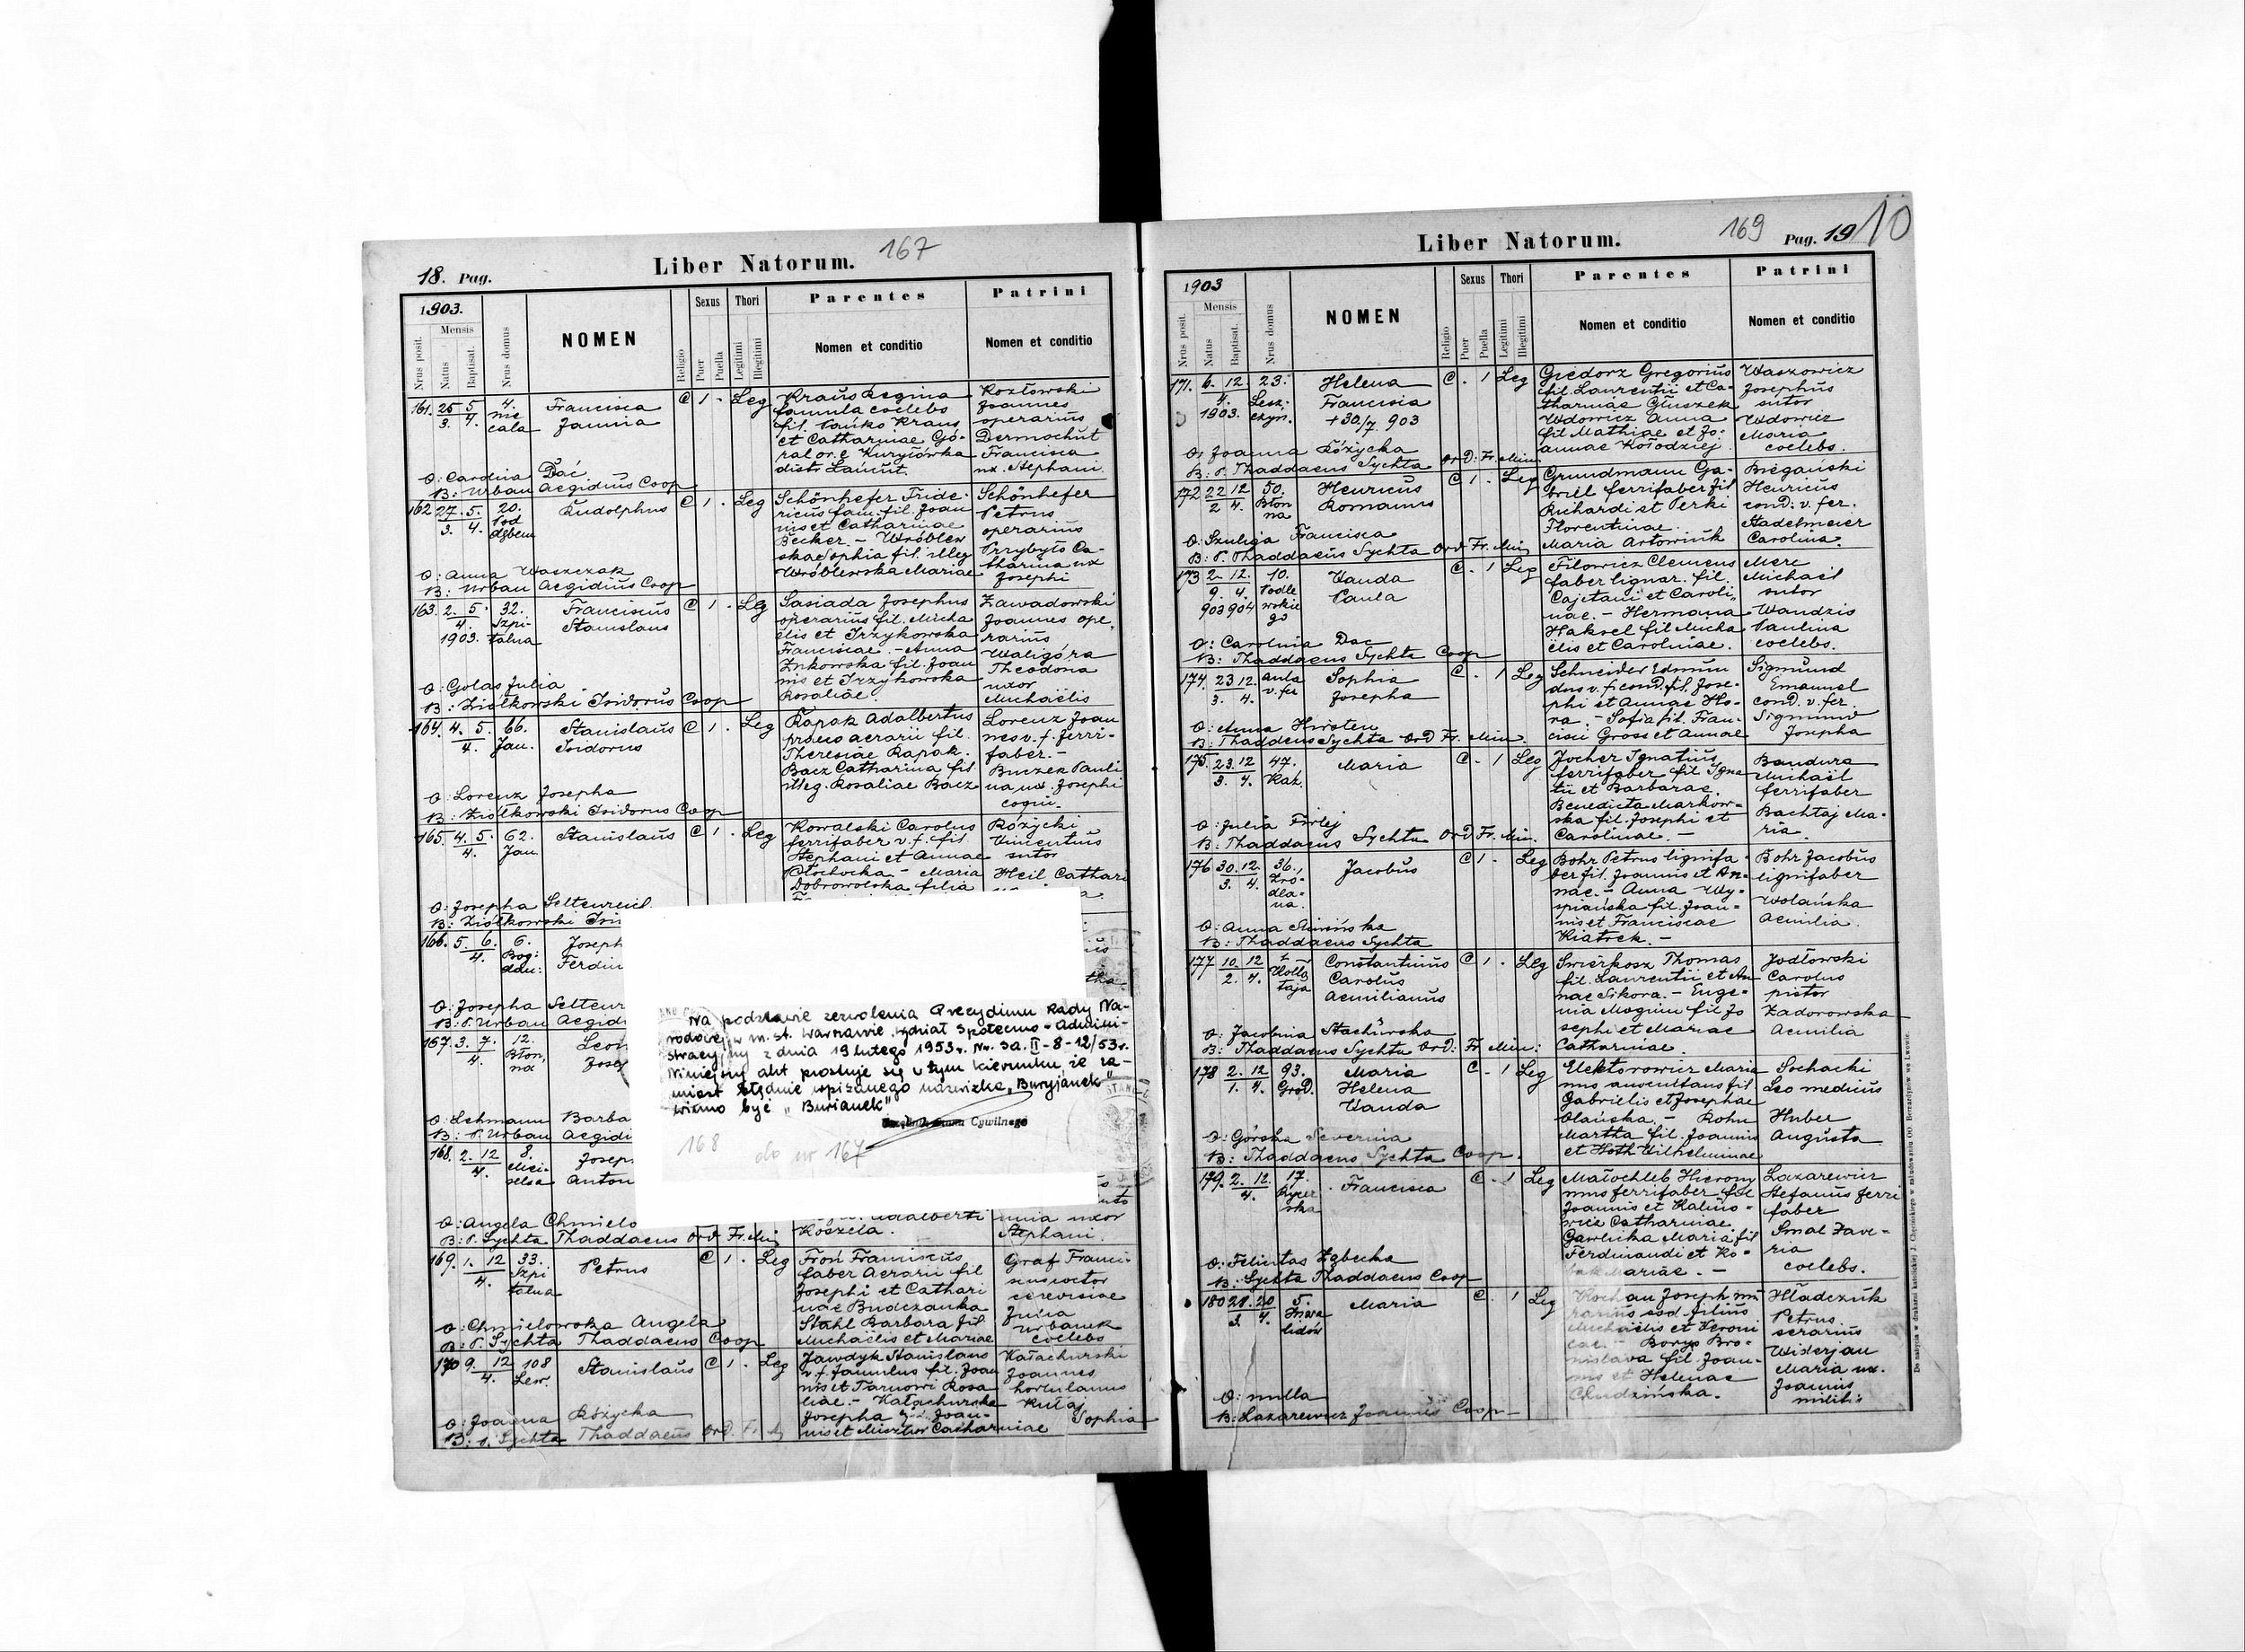 167
18. Pag.
Liber Natorum.
1903.
Nrus posit.
Mensis
Natus
Baptisat.
Nrus domus
NOMEN
Religio
Sexus
Puer
Puella
Thori
Legitimi
Illegitimi
Parentes
Nomen et conditio
Patrini
Nomen et conditio
161. 25 5 4. Francisca C 1 - Leg Kraus Regina Kozłowski
3. 4. nie Janina famula coelebs Joannes
cała fil. Kraus operarius
et Catharinae Gó-
ral or. e Kuryłówka Francisca
distr. Łańcut. ux. Stephani
O: Carolina Dać
B: Urban Aegidius Coop
162 27. 5. 20. Rudolphus C 1 - Leg Schönhefer Fride- Schönhefer
3. 4. Pod ricus fam. fil. Joan Petrus
dębem nis et Catharinae operarius
Becker. - Wróblew Przybyło Ca-
ska Sophia fil. illeg tharina ux
Wróblewska Mariae Josephi
O: Anna Waszczak
B: Urban Aegidius Coop
163. 2. 5. 32. Franciscus C 1 - Leg Sasiada Josephus Zawadowski
4. Szpi- Stanislaus operarius fil. Micha Joannes ope
1903. talna elis et Trzykowska rarius
Franciscae. - Anna Waligóra
Żukowska fil. Joan Theodora
nis et Trzykowska uxor
Rosaliae. Michaëlis
O: Golas Julia
B: Ziółkowski Isidorus Coop
164. 4. 5. 66. Stanislaus C 1 - Leg Rapak Adalbertus Lorenz Joan
4. Jan. Isidorus aerarii fil. nes v. f. ferri-
Theresiae Rapak. faber. -
Bacz Catharina fil Buczek Pauli
illeg. Rosaliae Bacz na ux. Josephi
O: Lorenz Josepha
B: Ziółkowski Isidorus Coop
165. 4. 5. 62. Stanislaus C 1 - Leg Kowalski Carolus Różycki
4. Jan ferrifaber v. f. fil. Vincentius
Stephani et Annae sutor
Płochocka. - Maria Heil Cathari
Dobrowolska filia
O: Josepha
B: Ziółkowski
166. 5. 6. 6. Joseph
4. Bog: Ferdin
dan:
O: Josepha
B: P. Urban Aegid
167 3. 7. 12. Leon
4. Błon,
na
O: Lehmann Barba
B: P. Urban Aegidi
168. 2. 12 8. Josep
4. Anton
Na podstawie zezwolenia Prezydium Rady Na-
rodowej w m. st. Warszawie, wydział Społeczno-Admini-
stracyjny z dnia 19 lutego 1953 r. Nr. SA. II-8-12/53 r.
niniejszy akt prostuje się w tym kierunku, że za-
miast błędnie wpisanego nazwiska „Buryjanek"
winno być „Burianek"
Cywilnego
168
do nr 167
O: Angela Chmielo
B: P. Sychta Thaddaeus Ord Fr. Min Koszela. Stephani.
169. 1. 12 33. Petrus C 1 - Leg Froń Franciscus Graf Franci-
4. Szpi faber Aerarii fil
talna Josephi et Cathari cerevisiae
nae Budczanka Julia
Stahl Barbara fil. Urbanek
Michaëlis et Mariae coelebs
O: Chmielowska Angela
B: P. Sychta Thaddaeus Coop
170 9. 12 108 Stanislaus C 1 - Leg Jawdyk Stanislaus Kałachurski
4. Lew. v. f. famulus fil. Joan Joannes
nis et Tarnowi Rosa hortulanus
liae. - Kałachurska Kułaj
Josepha fil. Joan- Sophia
nis et Catharinae
O: Joanna Różycka
B: P. Sychta Thaddaeus Ord. Fr.
169
Pag. 19
10
Liber Natorum.
1903
Nrus posit.
Mensis
Natus
Baptisat.
Nrus domus
NOMEN
Religio
Sexus
Puer
Puella
Thori
Legitimi
Illegitimi
Parentes
Nomen et conditio
Patrini
Nomen et conditio
171. 6. 12. 23. Helena C. - 1 Leg Giedorz Gregorius Waszowicz
4. Lesz- Francisia fil. Laurentii et Ca- Josephus
1903. czyń. +30/7 903 tharinae Głuszek sutor
Wdowicz Anna Wdowicz
fil Mathiae et Jo- Maria
annae Kołodziej coelebs.
O: Joanna Różycka
B: P. Thaddaeus Sychta Ord: Fr. Min
172 22 12 50. Henricus C 1 - Leg Grundmann Ga- Biegański
2 4. Błon Romanus briel ferrifaber fil Henricus
na Richardi et Perki cond: v. fer.
Florentinae. Stadelmeier
Maria Artowiuk Carolina.
O: Szuliga Francisca
B: P. Thaddaeus Sychta Ord Fr. Min
173 2. 12. 10. Vanda C. - 1 Leg Filowicz Clemens Merc
9. 4. Podle Paula faber lignar. fil. Michaël
903 904 wskie Cajetani et Caroli sutor
go nae. - Hermana Wandzis
Haksel fil Micha Paulina
ëlis et Carolinae. coelebs.
O: Carolina Dac
B: Thaddaeus Sychta Coop
174. 23 12. aula Sophia C. - 1 Leg Schneider Edmun Sigmund
3. 4. v. fer Josepha dus v. f. cond. fil. Jose- Emanuel
phi et Annae Ho- cond. v. fer.
ra. - Sofia fil. Fran- Sigmund
cisci Gross et Annae Josepha
O: Anna Hirsten
B: Thaddeus Sychta Ord Fr. Min.
175. 23. 12 47. Maria C. - 1 Leg Jocher Ignatius Bandura
3. 4. Kaz. ferrifaber fil Igna Michaël
tii et Barbarae. ferrifaber
Benedicta Markow- Bachtaj Ma-
ska fil. Josephi et ria.
Carolinae. -
O: Julia Firlej
B: Thaddaeus Sychta Ord Fr. Min.
176 30. 12. 36. Jacobus C 1 - Leg Bohr Petrus lignifa- Bohr Jacobus
3. 4. Źró- ber fil. Joannis et An- lignifaber
dla- nae. - Anna Wy- Wolańska
na. spiańska fil. Joan- Aemilia.
nis et Franciscae
Kiatrek. -
O: Anna Śliwińska
B: Thaddaeus Sychta
177 10. 12 Constantinus C 1 - Leg Świerkosz Thomas Jodłowski
2. 4. Kołłą Carolus fil. Laurentii et An Carolus
taja Aemilianus nae Sikora. - Euge- pictor
nia Magini fil Jo Zadorowska
sephi et Mariae Aemilia
Catharinae.
O: Jacobina Stachurska
B: Thaddaeus Sychta Ord: Fr Min:
178 2. 12 93. Maria C - 1 Leg Elektorowicz Maria Sochacki
1. 4. Grod. Helena nus auscultans fil. Leo medicus
Vanda Gabrielis et Josephae
Olańska. - Rohn Huber
Martha fil. Joannis Augusta
et Hoth Vilhelminae
O: Górska Severina
B: Thaddaeus Sychta Coop.
179. 2. 12. 17. Francisca C. - 1 Leg Małochleb Hierony Lazarewicz
4. Rycer mus ferrifaber fil Stefanus ferri
ska Joannis et Kalino- faber
wicz Catharinae. Smal Xave-
Gawlicka Maria fil ria
Ferdinandi et Ko- coelebs.
Mariae. -
O: Felicitas Ząbecka
B: Sychta Thaddaeus Coop
180 21. 20 5. Maria C. 1 Leg Kochan Joseph Hładczuk
3. 4. Inwa filius Petrus
lidów Michaëlis et Veroni
cae. - Borys Bro- Widerjan
nislava fil. Joan- Maria ux.
nis et Helenae Joannis
Chudzińska.
O: nulla
B: Lazarewicz Joannes Coop
Do nabycia w drukarni katolickiej J. Chęcińskiego w zabudowaniu OO. Bernardynów we Lwowie.